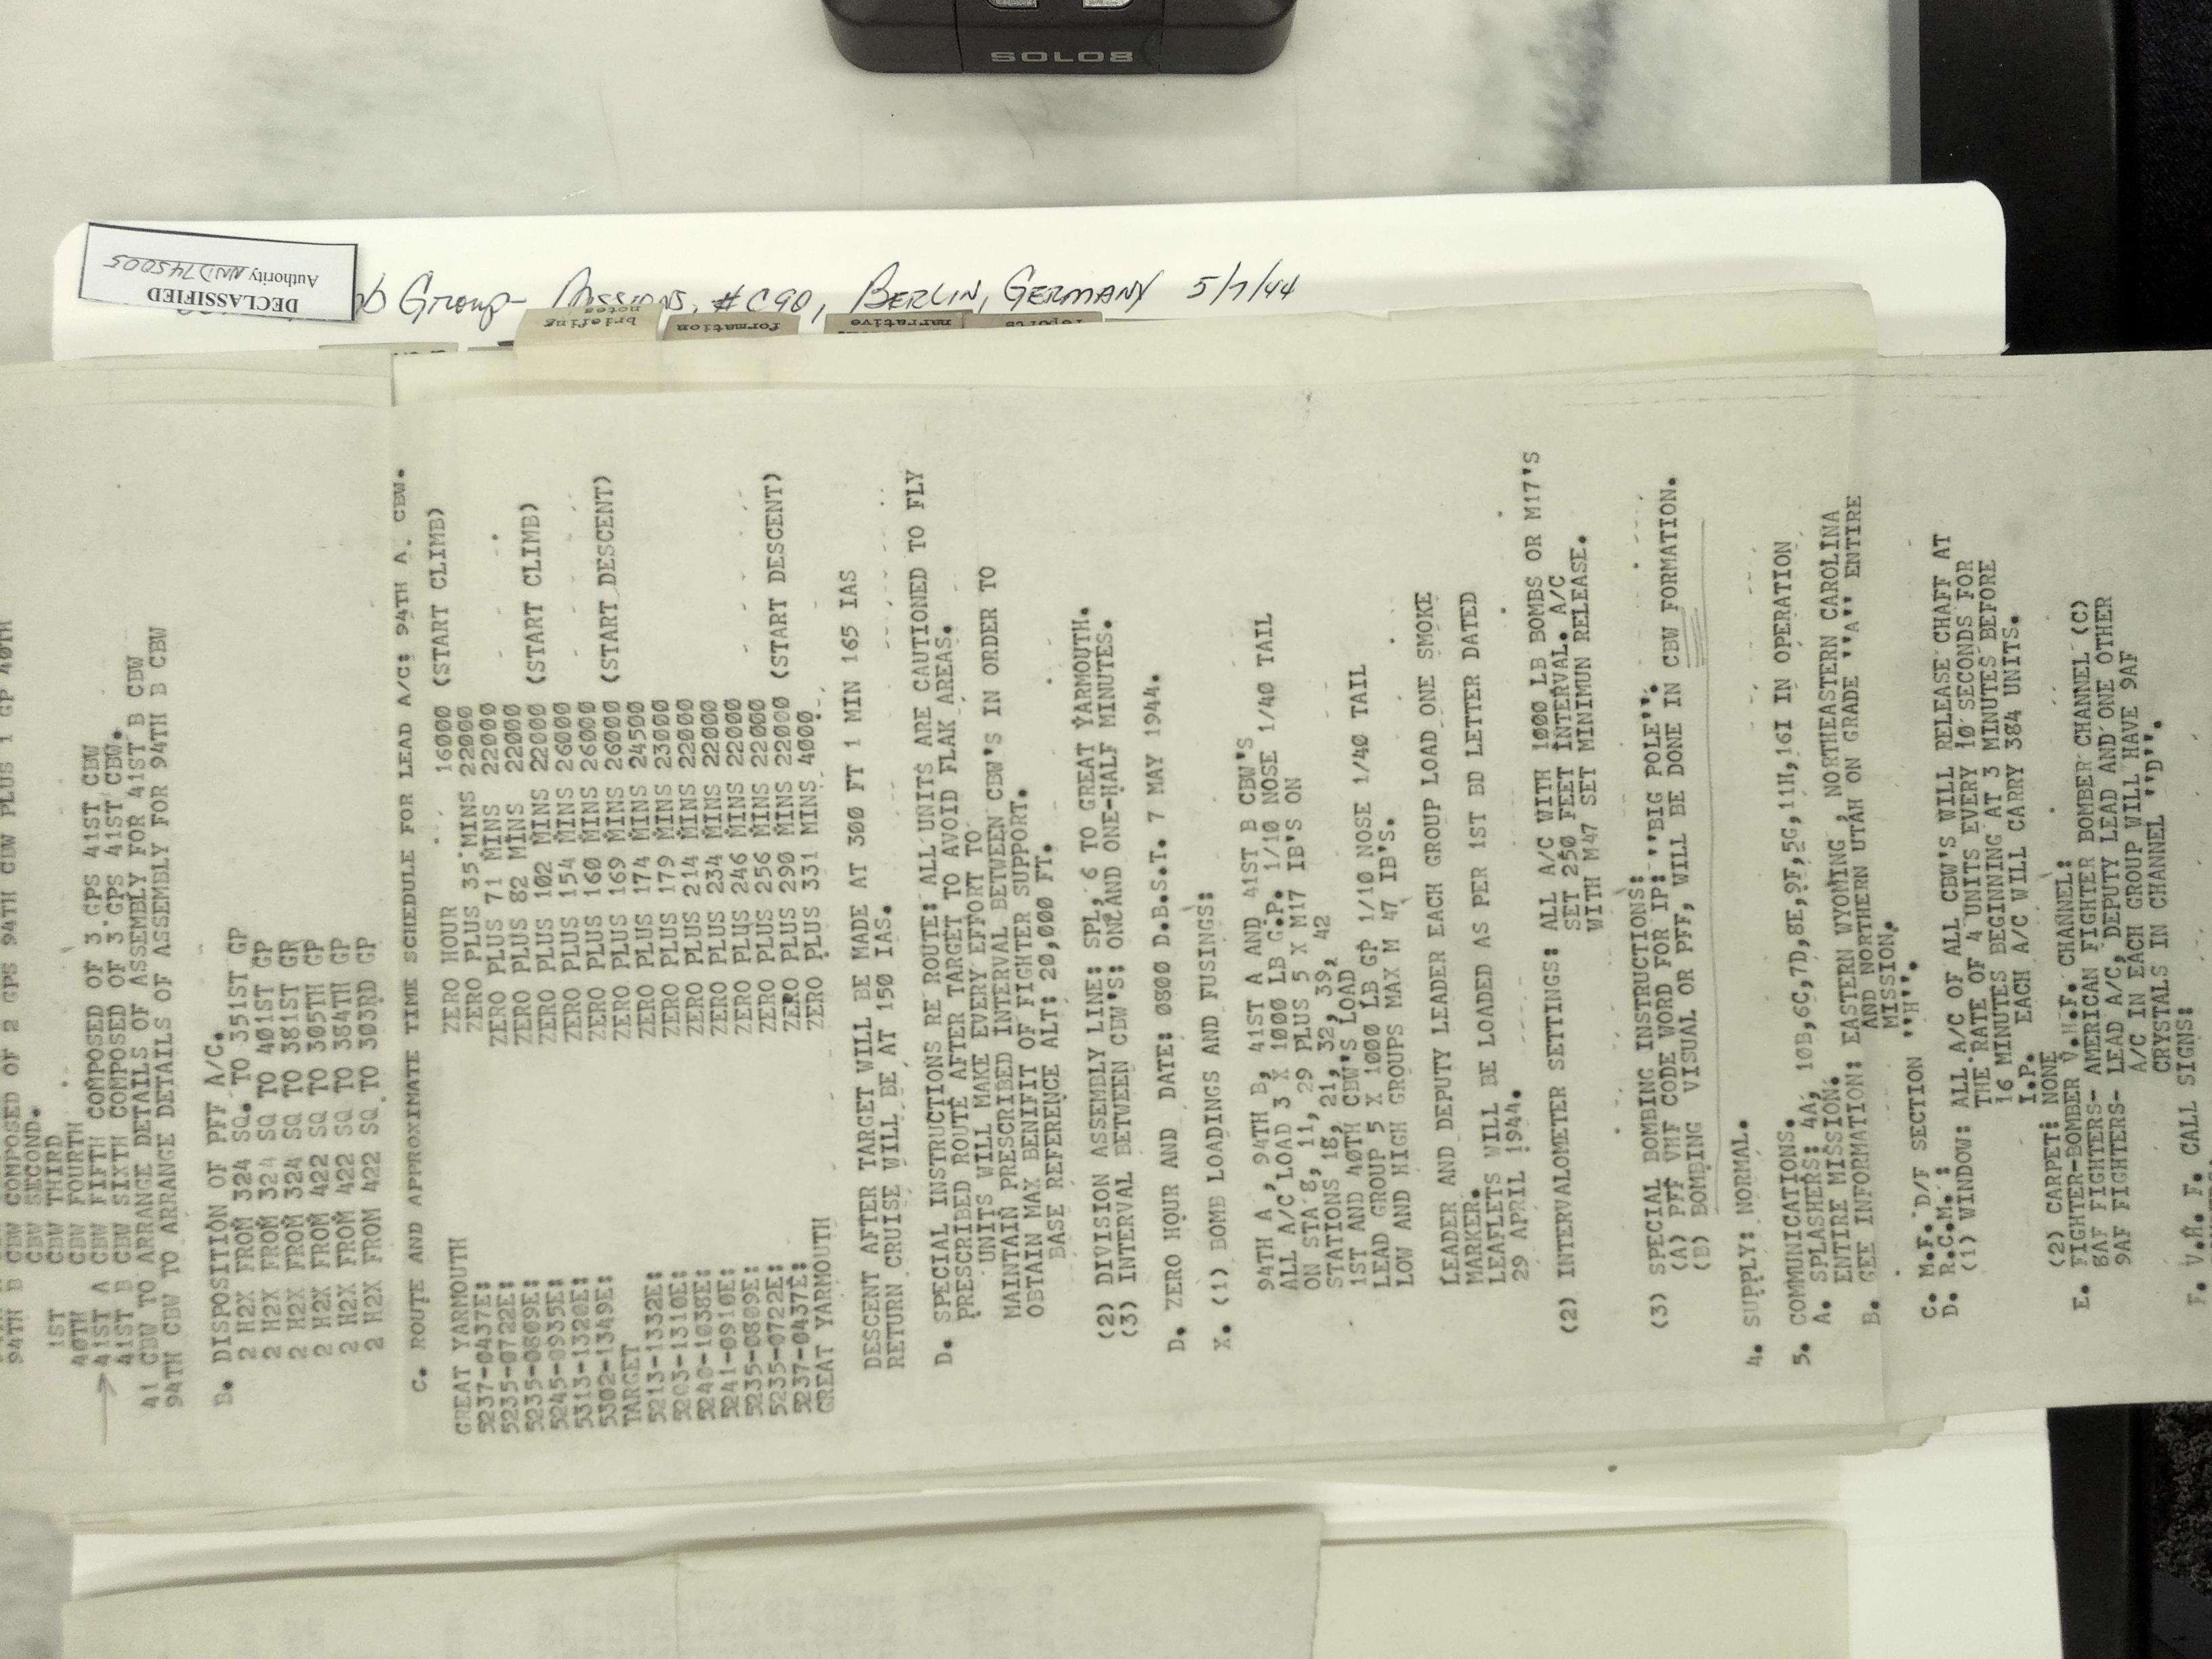 SOLOS
DECLASSIFIED
Authority NND745005
b Group- Missions, #C90, BERLIN, GERMANY 5/7/44
briefing
notes
formation
narrative
reports
94TH B CBW COMPOSED OF 2 GPS 94TH CBW PLUS 1 GP 40TH
CBW SECOND.
1ST CBW THIRD
40TH CBW FOURTH
41ST A CBW FIFTH COMPOSED OF 3 GPS 41ST CBW
41ST B CBW SIXTH COMPOSED OF 3 GPS 41ST CBW.
41 CBW TO ARRANGE DETAILS OF ASSEMBLY FOR 41ST B CBW
94TH CBW TO ARRANGE DETAILS OF ASSEMBLY FOR 94TH B CBW
B. DISPOSITION OF PFF A/C.
2 H2X FROM 324 SQ. TO 351ST GP
2 H2X FROM 324 SQ TO 401ST GP
2 H2X FROM 324 SQ TO 381ST GR
2 H2X FROM 422 SQ TO 305TH GP
2 H2X FROM 422 SQ TO 384TH GP
2 H2X FROM 422 SQ TO 303RD GP
C. ROUTE AND APPROXIMATE TIME SCHEDULE FOR LEAD A/C: 94TH A. CBW.
GREAT YARMOUTH ZERO HOUR 16000 (START CLIMB)
5237-0437E: ZERO PLUS 35 MINS 22000
5235-0722E: ZERO PLUS 71 MINS 22000
5235-0809E: ZERO PLUS 82 MINS 22000
5245-0935E: ZERO PLUS 102 MINS 22000 (START CLIMB)
5313-1320E: ZERO PLUS 154 MINS 26000
5302-1349E: ZERO PLUS 160 MINS 26000
TARGET ZERO PLUS 169 MINS 26000 (START DESCENT)
5213-1332E: ZERO PLUS 174 MINS 24500
5203-1310E: ZERO PLUS 179 MINS 23000
5240-1038E: ZERO PLUS 214 MINS 22000
5241-0910E: ZERO PLUS 234 MINS 22000
5235-0809E: ZERO PLUS 246 MINS 22000
5235-0722E: ZERO PLUS 256 MINS 22000
5237-0437E: ZERO PLUS 290 MINS 22000 (START DESCENT)
GREAT YARMOUTH ZERO PLUS 331 MINS 4000
DESCENT AFTER TARGET WILL BE MADE AT 300 FT 1 MIN 165 IAS
RETURN CRUISE WILL BE AT 150 IAS.
D. SPECIAL INSTRUCTIONS RE ROUTE: ALL UNITS ARE CAUTIONED TO FLY
PRESCRIBED ROUTE AFTER TARGET TO AVOID FLAK AREAS.
UNITS WILL MAKE EVERY EFFORT TO
MAINTAIN PRESCRIBED INTERVAL BETWEEN CBW'S IN ORDER TO
OBTAIN MAX BENIFIT OF FIGHTER SUPPORT.
BASE REFERENCE ALT: 20,000 FT.
(2) DIVISION ASSEMBLY LINE: SPL, 6 TO GREAT YARMOUTH.
(3) INTERVAL BETWEEN CBW'S: ONE AND ONE-HALF MINUTES.
D. ZERO HOUR AND DATE: 0800 D.B.S.T. 7 MAY 1944.
X. (1) BOMB LOADINGS AND FUSINGS:
94TH A , 94TH B, 41ST A AND 41ST B CBW'S
ALL A/C LOAD 3 X 1000 LB G.P. 1/10 NOSE 1/40 TAIL
ON STA 8, 11, 29 PLUS 5 X M17 IB'S ON
STATIONS 18, 21, 32, 39, 42
1ST AND 40TH CBW'S LOAD
LEAD GROUP 5 X 1000 LB GP 1/10 NOSE 1/40 TAIL
LOW AND HIGH GROUPS MAX M 47 IB'S.
LEADER AND DEPUTY LEADER EACH GROUP LOAD ONE SMOKE
MARKER.
LEAFLETS WILL BE LOADED AS PER 1ST BD LETTER DATED
29 APRIL 1944.
(2) INTERVALOMETER SETTINGS: ALL A/C WITH 1000 LB BOMBS OR M17'S
SET 250 FEET INTERVAL. A/C
WITH M47 SET MINIMUN RELEASE.
(3) SPECIAL BOMBING INSTRUCTIONS:
(A) PFF VHF CODE WORD FOR IP: ''BIG POLE''.
(B) BOMBING VISUAL OR PFF, WILL BE DONE IN CBW FORMATION.
4. SUPPLY: NORMAL.
5. COMMUNICATIONS.
A. SPLASHERS: 4A, 10B,6C,7D,8E,9F,5G,11H,16I IN OPERATION
ENTIRE MISSION.
B. GEE INFORMATION: EASTERN WYOMING , NORTHEASTERN CAROLINA
AND NORTHERN UTAH ON GRADE ''A'' ENTIRE
MISSION.
C. M.F. D/F SECTION ''H''.
D. R.C.M.:
(1) WINDOW: ALL A/C OF ALL CBW'S WILL RELEASE CHAFF AT
THE RATE OF 4 UNITS EVERY 10 SECONDS FOR
16 MINUTES BEGINNING AT 3 MINUTES BEFORE
I.P. EACH A/C WILL CARRY 384 UNITS.
(2) CARPET: NONE
E. FIGHTER-BOMBER V.H.F. CHANNEL:
8AF FIGHTERS- AMERICAN FIGHTER BOMBER CHANNEL (C)
9AF FIGHTERS- LEAD A/C, DEPUTY LEAD AND ONE OTHER
A/C IN EACH GROUP WILL HAVE 9AF
CRYSTALS IN CHANNEL ''D''.
F. V.H. F. CALL SIGNS: